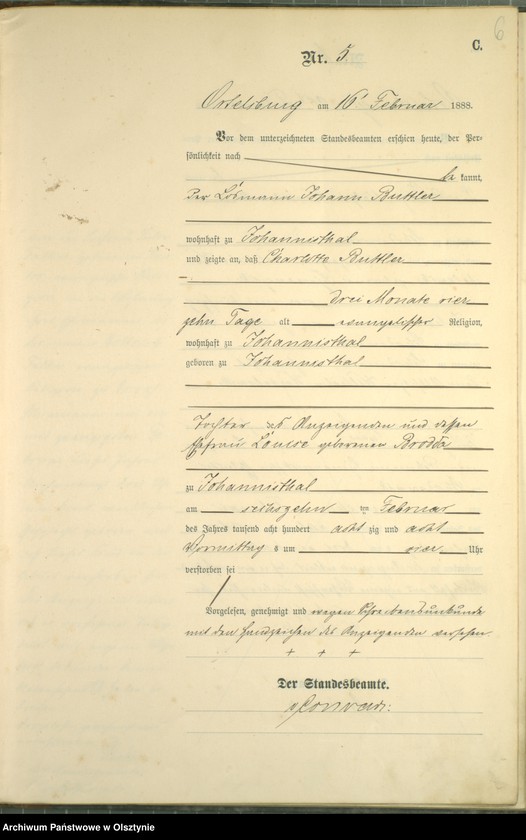 6
C.
Nr. 5
Ortelsburg am 16 Februar 1888.
Vor dem unterzeichneten Standesbeamten erschien heute, der Per-
sönlichkeit nach
be kannt,
Der Losmann Johann Buttler
wohnhaft zu Johannisthal
und zeigte an, daß Charlotte Buttler
drei Monate vier
zehn Tage alt evangelischer Religion,
wohnhaft zu Johannisthal
geboren zu Johannisthal
Tochter des Anzeigenden und dessen
Ehefrau Louise geborenen Brodda
zu Johannisthal
am sechszehn ten Februar
des Jahres tausend acht hundert acht zig und acht
Vormittag s um vier Uhr
verstorben sei
Vorgelesen, genehmigt und wegen Schreibensunkunde
mit den Handzeichen des Anzeigenden versehen
+ + +
Der Standesbeamte.
Archiwum Państwowe w Olsztynie